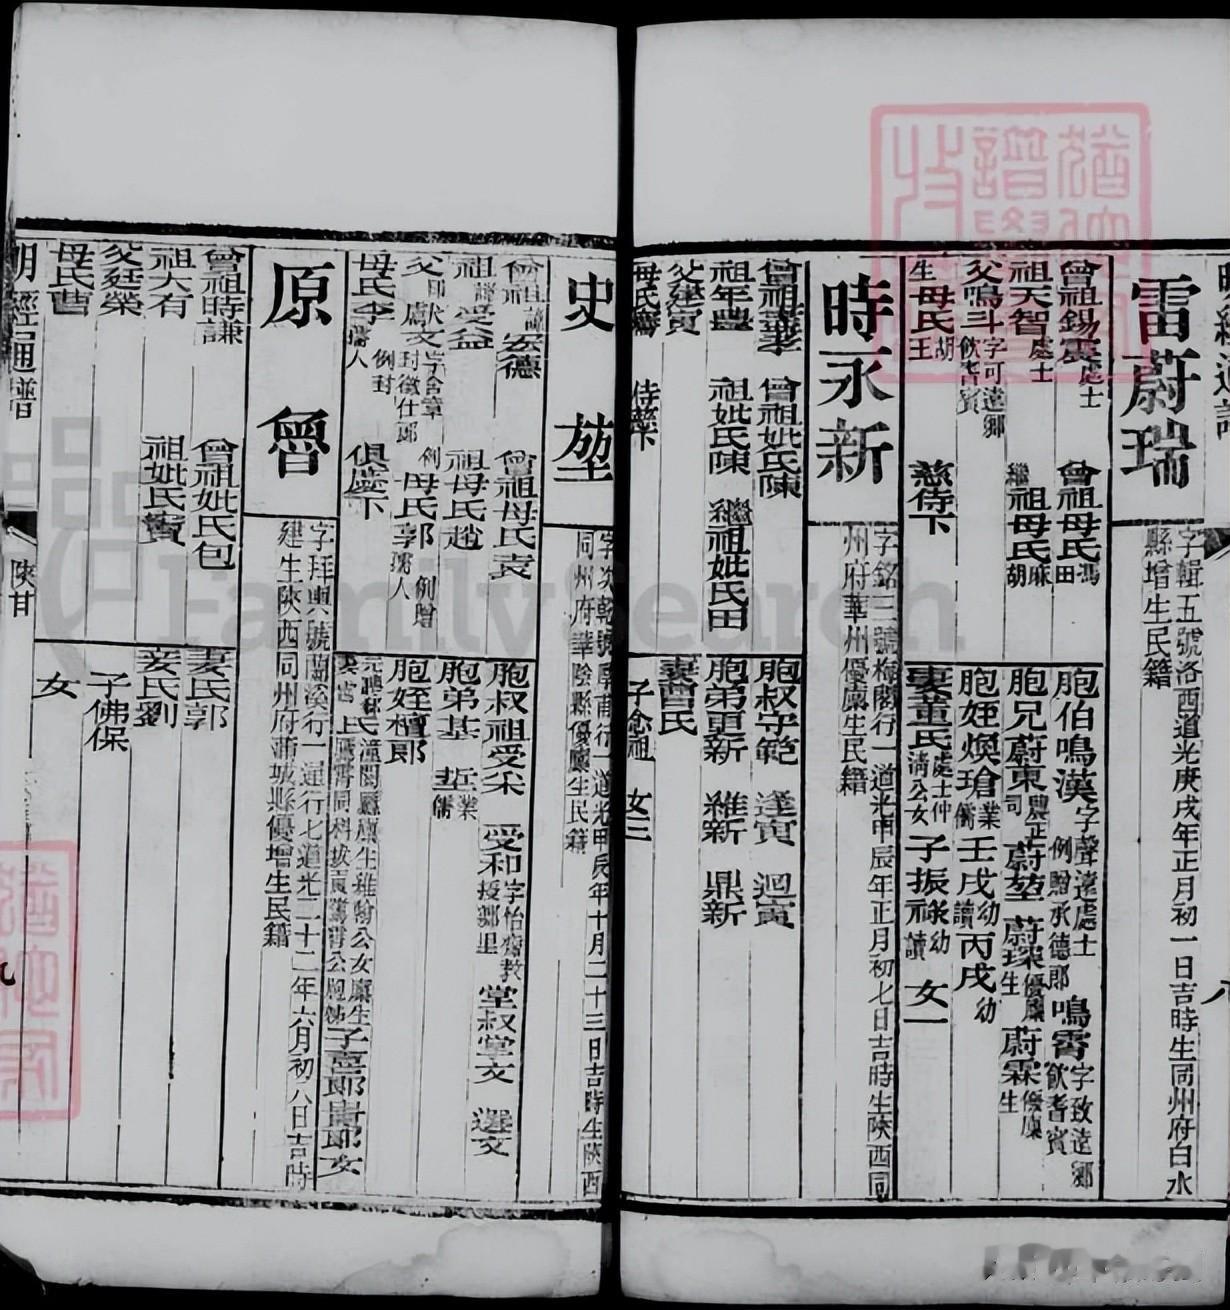 雷蔚瑞
字輯五號洛西道光庚戌年正月初一日吉時生同州府白水
縣增生民籍
曾祖錫震處士
曾祖母氏馮田
祖天智處士
繼祖母氏麻胡
父鳴斗字可遠鄉飲耆賓
生母氏胡王
慈侍下
胞伯鳴漢字聲遠處士例贈承德郎 鳴霄字致遠鄉飲耆賓
胞兄蔚東農正司 蔚堃 蔚琛優廩生 蔚霖優廩生
胞姪煥瑲業儒 壬戌幼讀 丙戌幼
妻董氏處士仲清公女 子振祿幼讀 女一
時永新
字銘三號梅閣行一道光甲辰年正月初七日吉時生陝西同
州府華州優廩生民籍
曾祖基業 曾祖妣氏陳
祖年豊 祖妣氏陳 繼祖妣氏田
父肇寅
侍下
胞叔守範 逢寅 迴寅
胞弟更新 維新 鼎新
子念祖 女三
史堃
字次乾號厚甫行一道光甲辰年十月二十三日吉時生陝西
同州府華陰縣優廩生民籍
曾祖諱宏德 曾祖母氏袁
祖諱受益 祖母氏趙
父印獻文字含章封徵仕郎 例母氏郭孺人例贈
母氏李孺人例封
俱慶下
胞叔祖受采 受和字怡齋教授鄉里 堂叔堂文 選文
胞弟基 堲業儒
胞姪檀郎
元聘鄒氏潼關廳廩生維翰公女廩生
妻雷氏 子喜郎壽郎女
原魯
字拜輿號蘭溪行一運行七道光二十二年六月初八日吉時
建生陝西同州府蒲城縣優增生民籍
曾祖時謙 曾祖妣氏包
祖大有 祖妣氏竇
父廷榮
母氏曹
妻氏郭
妾氏劉
子佛保
女
明經通譜
陝甘
九
八
FamilySearch